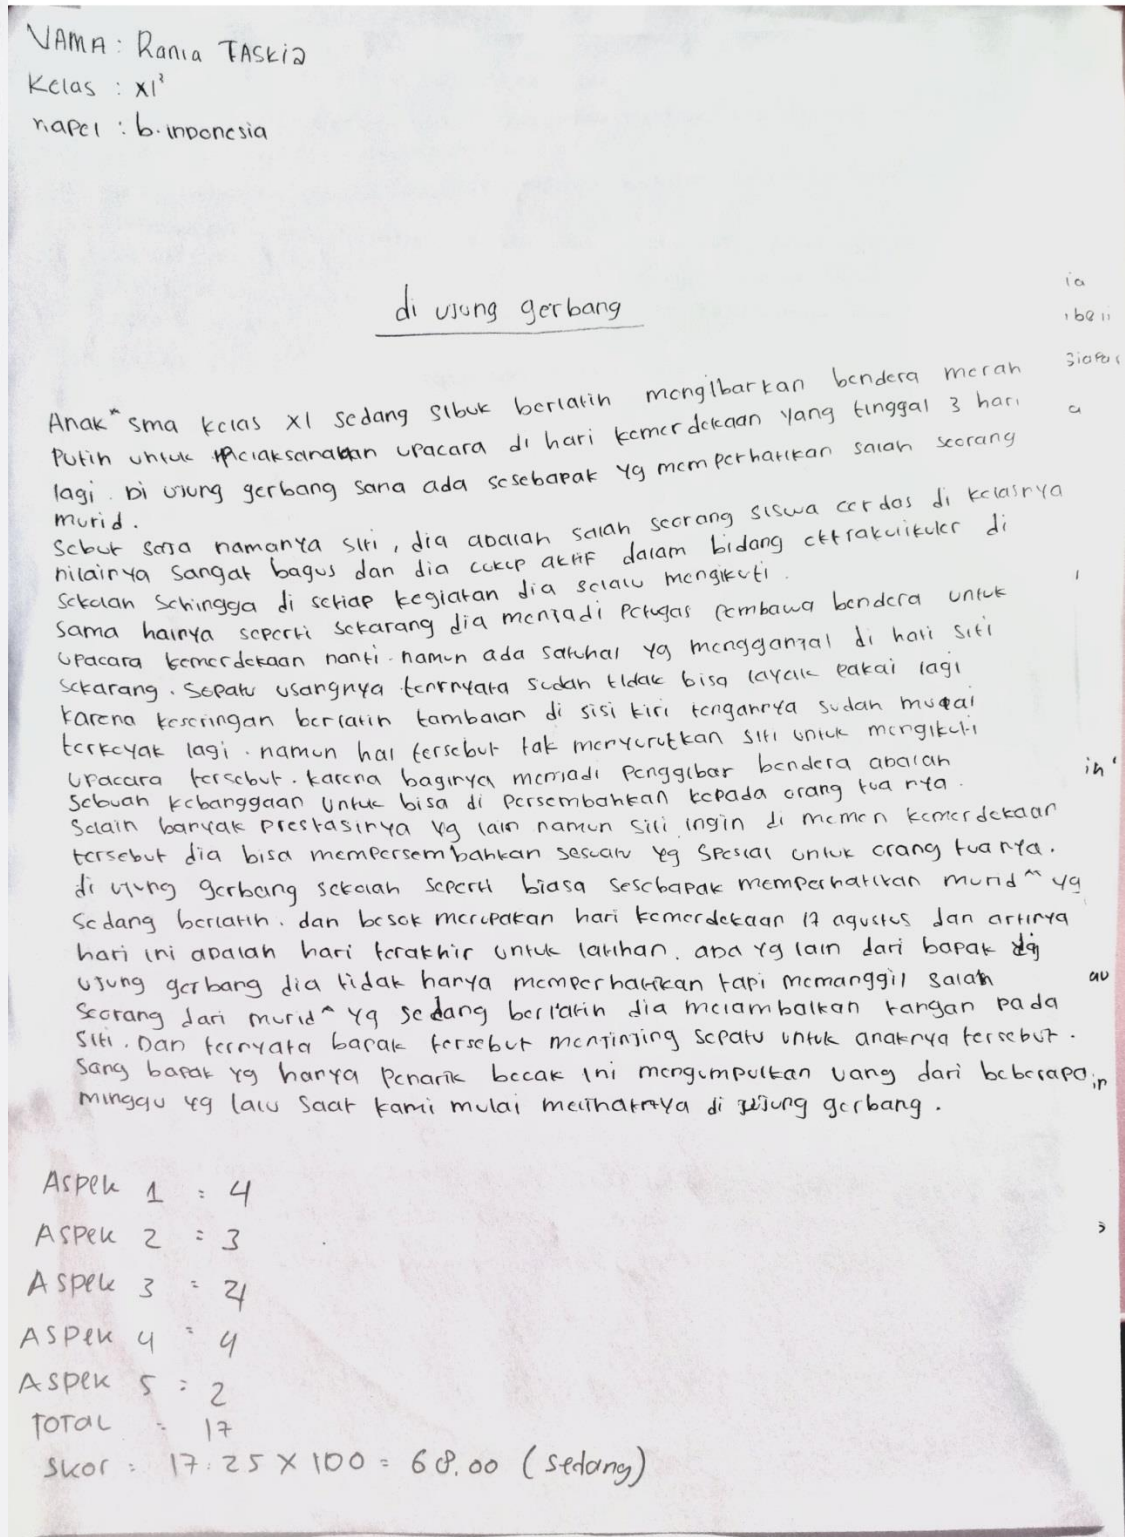 NAMA : Rania TASKia
Kelas : XI²
mapel : b.inDonesia
di ujung gerbang
Anak^ sma kelas XI sedang sibuk berlatih mengibarkan bendera merah
Putih untuk melaksanakan upacara di hari kemerdekaan yang tinggal 3 hari
lagi. Di ujung gerbang sana ada sesebapak yg memperhatikan salah seorang
murid.
Sebut saja namanya siti, dia adalah salah seorang siswa cerdas di kelasnya
nilainya sangat bagus dan dia cukup aktif dalam bidang ektrakulikuler di
sekolah sehingga di setiap kegiatan dia selalu mengikuti.
sama halnya seperti sekarang dia menjadi petugas pembawa bendera untuk
upacara kemerdekaan nanti. namun ada satuhal yg mengganjal di hati siti
sekarang. Sepatu usangnya ternyata sudah tidak bisa layak pakai lagi
karena keseringan berlatih tambalan di sisi kiri tengahnya sudah mulai
terkoyak lagi. namun hal tersebut tak menyurutkan siti untuk mengikuti
upacara tersebut. karena baginya menjadi penggibar bendera adalah
sebuah kebanggaan untuk bisa di persembahkan kepada orang tua nya.
Selain banyak prestasinya yg lain namun siti ingin di momen kemerdekaan
tersebut dia bisa mempersembahkan sesuatu yg spesial untuk orang tuanya.
di ujung gerbang sekolah seperti biasa sesebapak memperhatikan murid^ yg
sedang berlatih. dan besok merupakan hari kemerdekaan 17 agustus dan artinya
hari ini adalah hari terakhir untuk latihan. ada yg lain dari bapak di
ujung gerbang dia tidak hanya memperhatikan tapi memanggil salah
seorang dari murid^ yg sedang berlatih dia melambaikan tangan pada
siti. Dan ternyata bapak tersebut menjinjing sepatu untuk anaknya tersebut.
Sang bapak yg hanya penarik becak ini mengumpulkan uang dari beberapa
minggu yg lalu saat kami mulai melihatnya di ujung gerbang.
Aspek 1 : 4
Aspek 2 : 3
Aspek 3 : 4
Aspek 4 : 4
Aspek 5 : 2
TOTAL : 17
Skor : 17:25 X 100 = 68.00 (sedang)